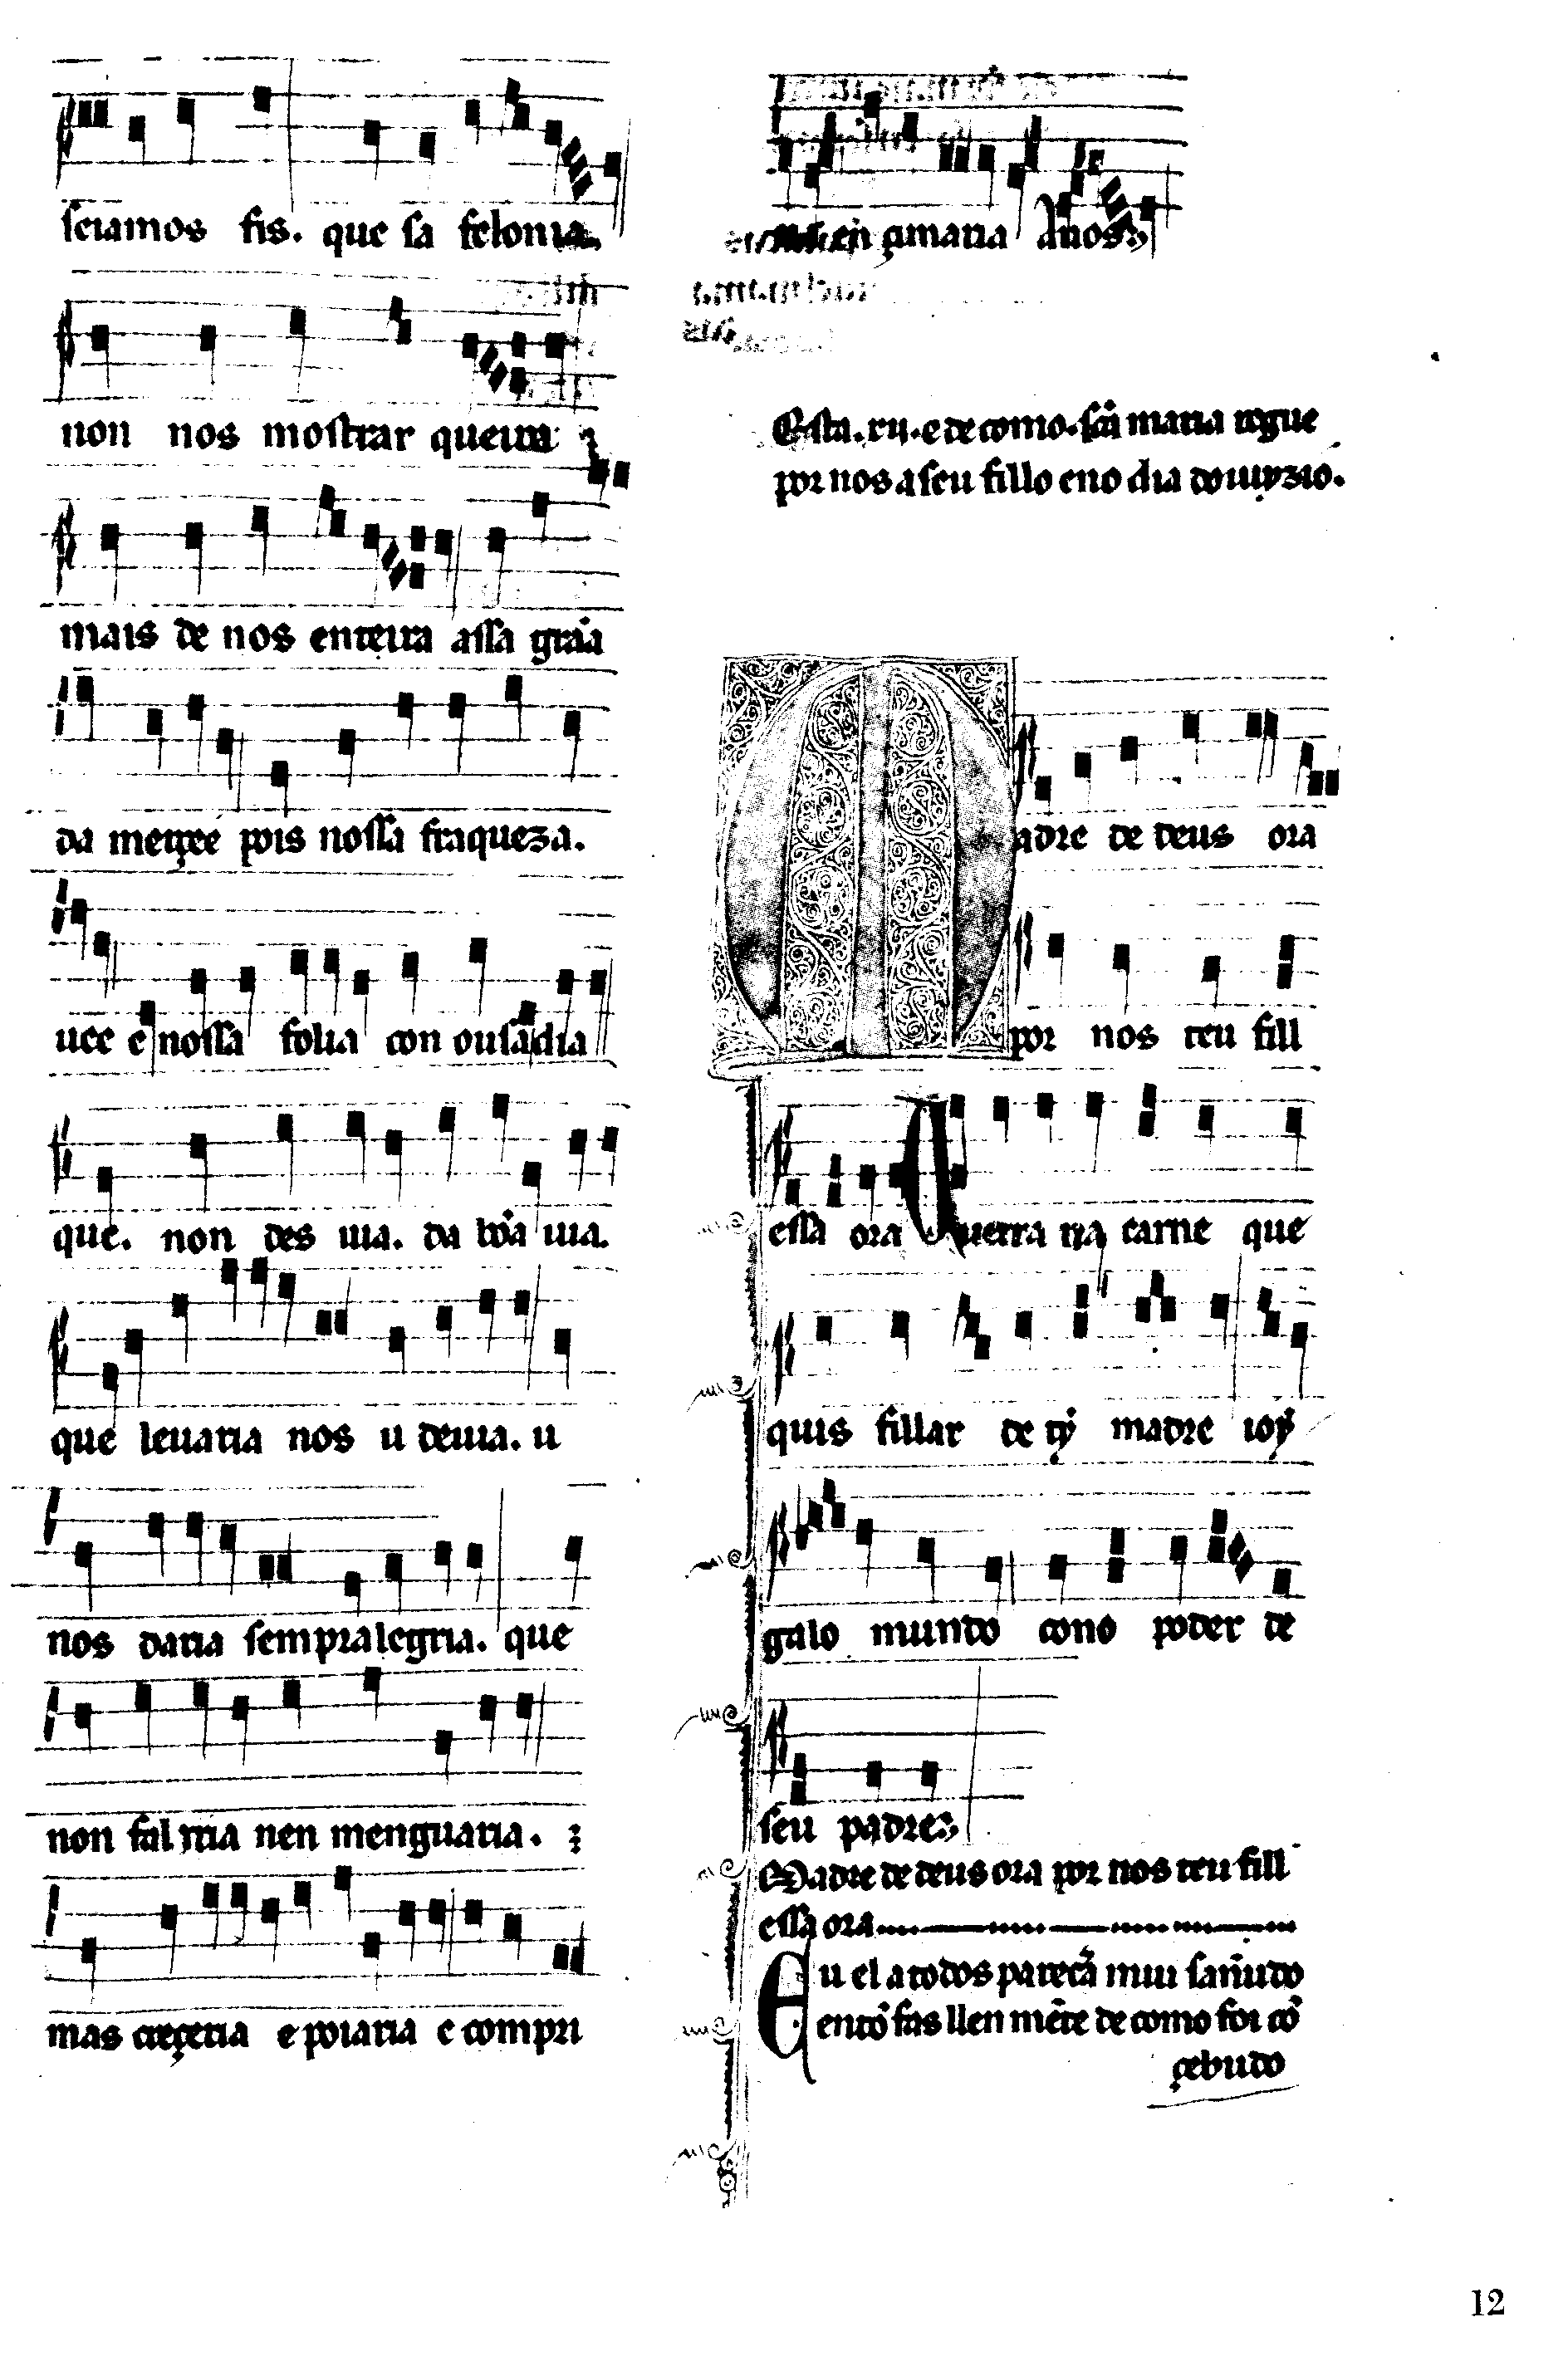 sciamos fis. que sa felonia.
non nos mostrar queira
mais de nos enteira assa gr̃a
da merçee pois nossa fraqueza.
uee e nossa folia con ousadia
que. non des uia. da bõa uia.
que leuaria nos u deuia. u
nos daria sempralegria. que
non falrria nen menguaria.
mas creçeria e poiaria e compri
en çimaria Anos
Esta .xii. e de como. scã maria rogue
por nos a seu fillo eno dia do iuyzio.
Madre de deus ora
por nos teu fill
essa ora Querra na carne que
quis fillar de ty madre ioy
galo mundo cono poder de
seu padre
Madre de deus ora por nos teu fill
essa ora
Eu el a todos pareçã mui sañudo
entõ fas llen mẽte de como foi cõ
çebudo
12